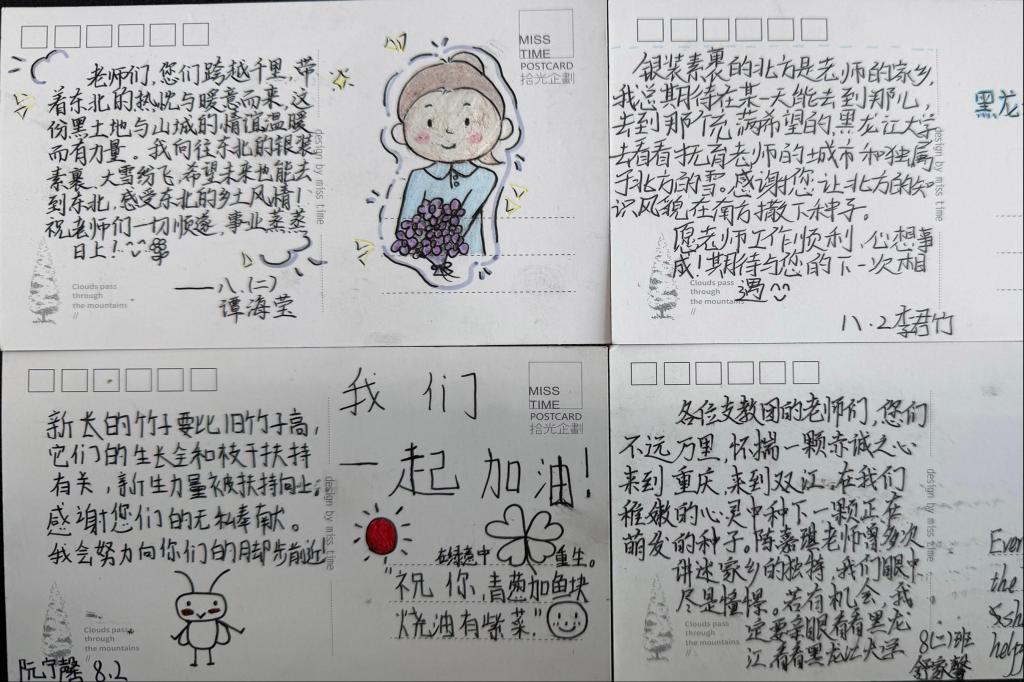 老师们，您们跨越千里，带
着东北的热忱与暖意而来，这
份黑土地与山城的情谊温暖
而有力量。我向往东北的银装
素裹、大雪纷飞，希望未来也能去
到东北，感受东北的乡土风情！
祝老师们一切顺遂，事业蒸蒸
日上！
——八.(二)
谭海莹
Clouds pass
through
the mountains
//
design by miss time
MISS
TIME
POSTCARD
拾光企劃
银装素裹的北方是老师的家乡，
我总期待在某一天能去到那儿，
去到那个充满希望的黑龙江大学
去看看抚育老师的城市和独属
于北方的雪。感谢您让北方的知
识风貌在南方撒下种子。
愿老师工作顺利，心想事
成！期待与您的下一次相
遇
八.2李君竹
Clouds pass
through
the mountains
//
design by miss time
黑龙
新长的竹子要比旧竹子高，
它们的生长全和枝干扶持
有关，新生力量被扶持向上。
感谢您们的无私奉献。
我会努力向你们的脚步前进！
Clouds pass
through
the mountains
//
阮宁馨 8.2
design by miss time
我们
一起加油！
MISS
TIME
POSTCARD
拾光企劃
在绿意中 重生。
“祝你，青葱加鱼块
烧油有紫菜”
各位支教团的老师们，您们
不远万里，怀揣一颗赤诚之心
来到重庆，来到双江。在我们
稚嫩的心灵中种下一颗正在
萌发的种子。陈嘉琪老师曾多次
讲述家乡的独特，我们眼中
尽是憧憬。若有机会，我
一定要亲眼看看黑龙
江，看看黑龙江大学
8(二)班
舒家馨
design by miss time
Ever
the
help